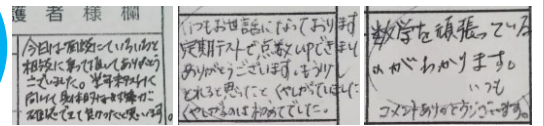 護者様欄
今日は面談でいろいろと
相談に乗って頂いてありがとう
ございました。学年末テストに
向けて具体的な対策が
確認できて良かったと思います。
いつもお世話になっております
定期テストで点数UPできまして
ありがとうございます。もう少し
とれると思ったと くやしがっていました
くやしがるのは初めてでした。
数学を頑張っている
のがわかります。
いつも
コメントありがとうございます。